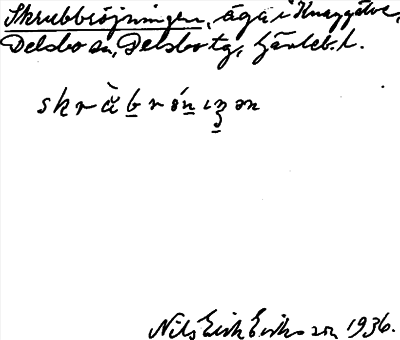 Skrubbröjningen, äga i Knaggälve,
Delsbo sn, Delsbo tg, Gävleb. l.
skràbrǿnɩʒən
Nils Erik Eriksson 1936.